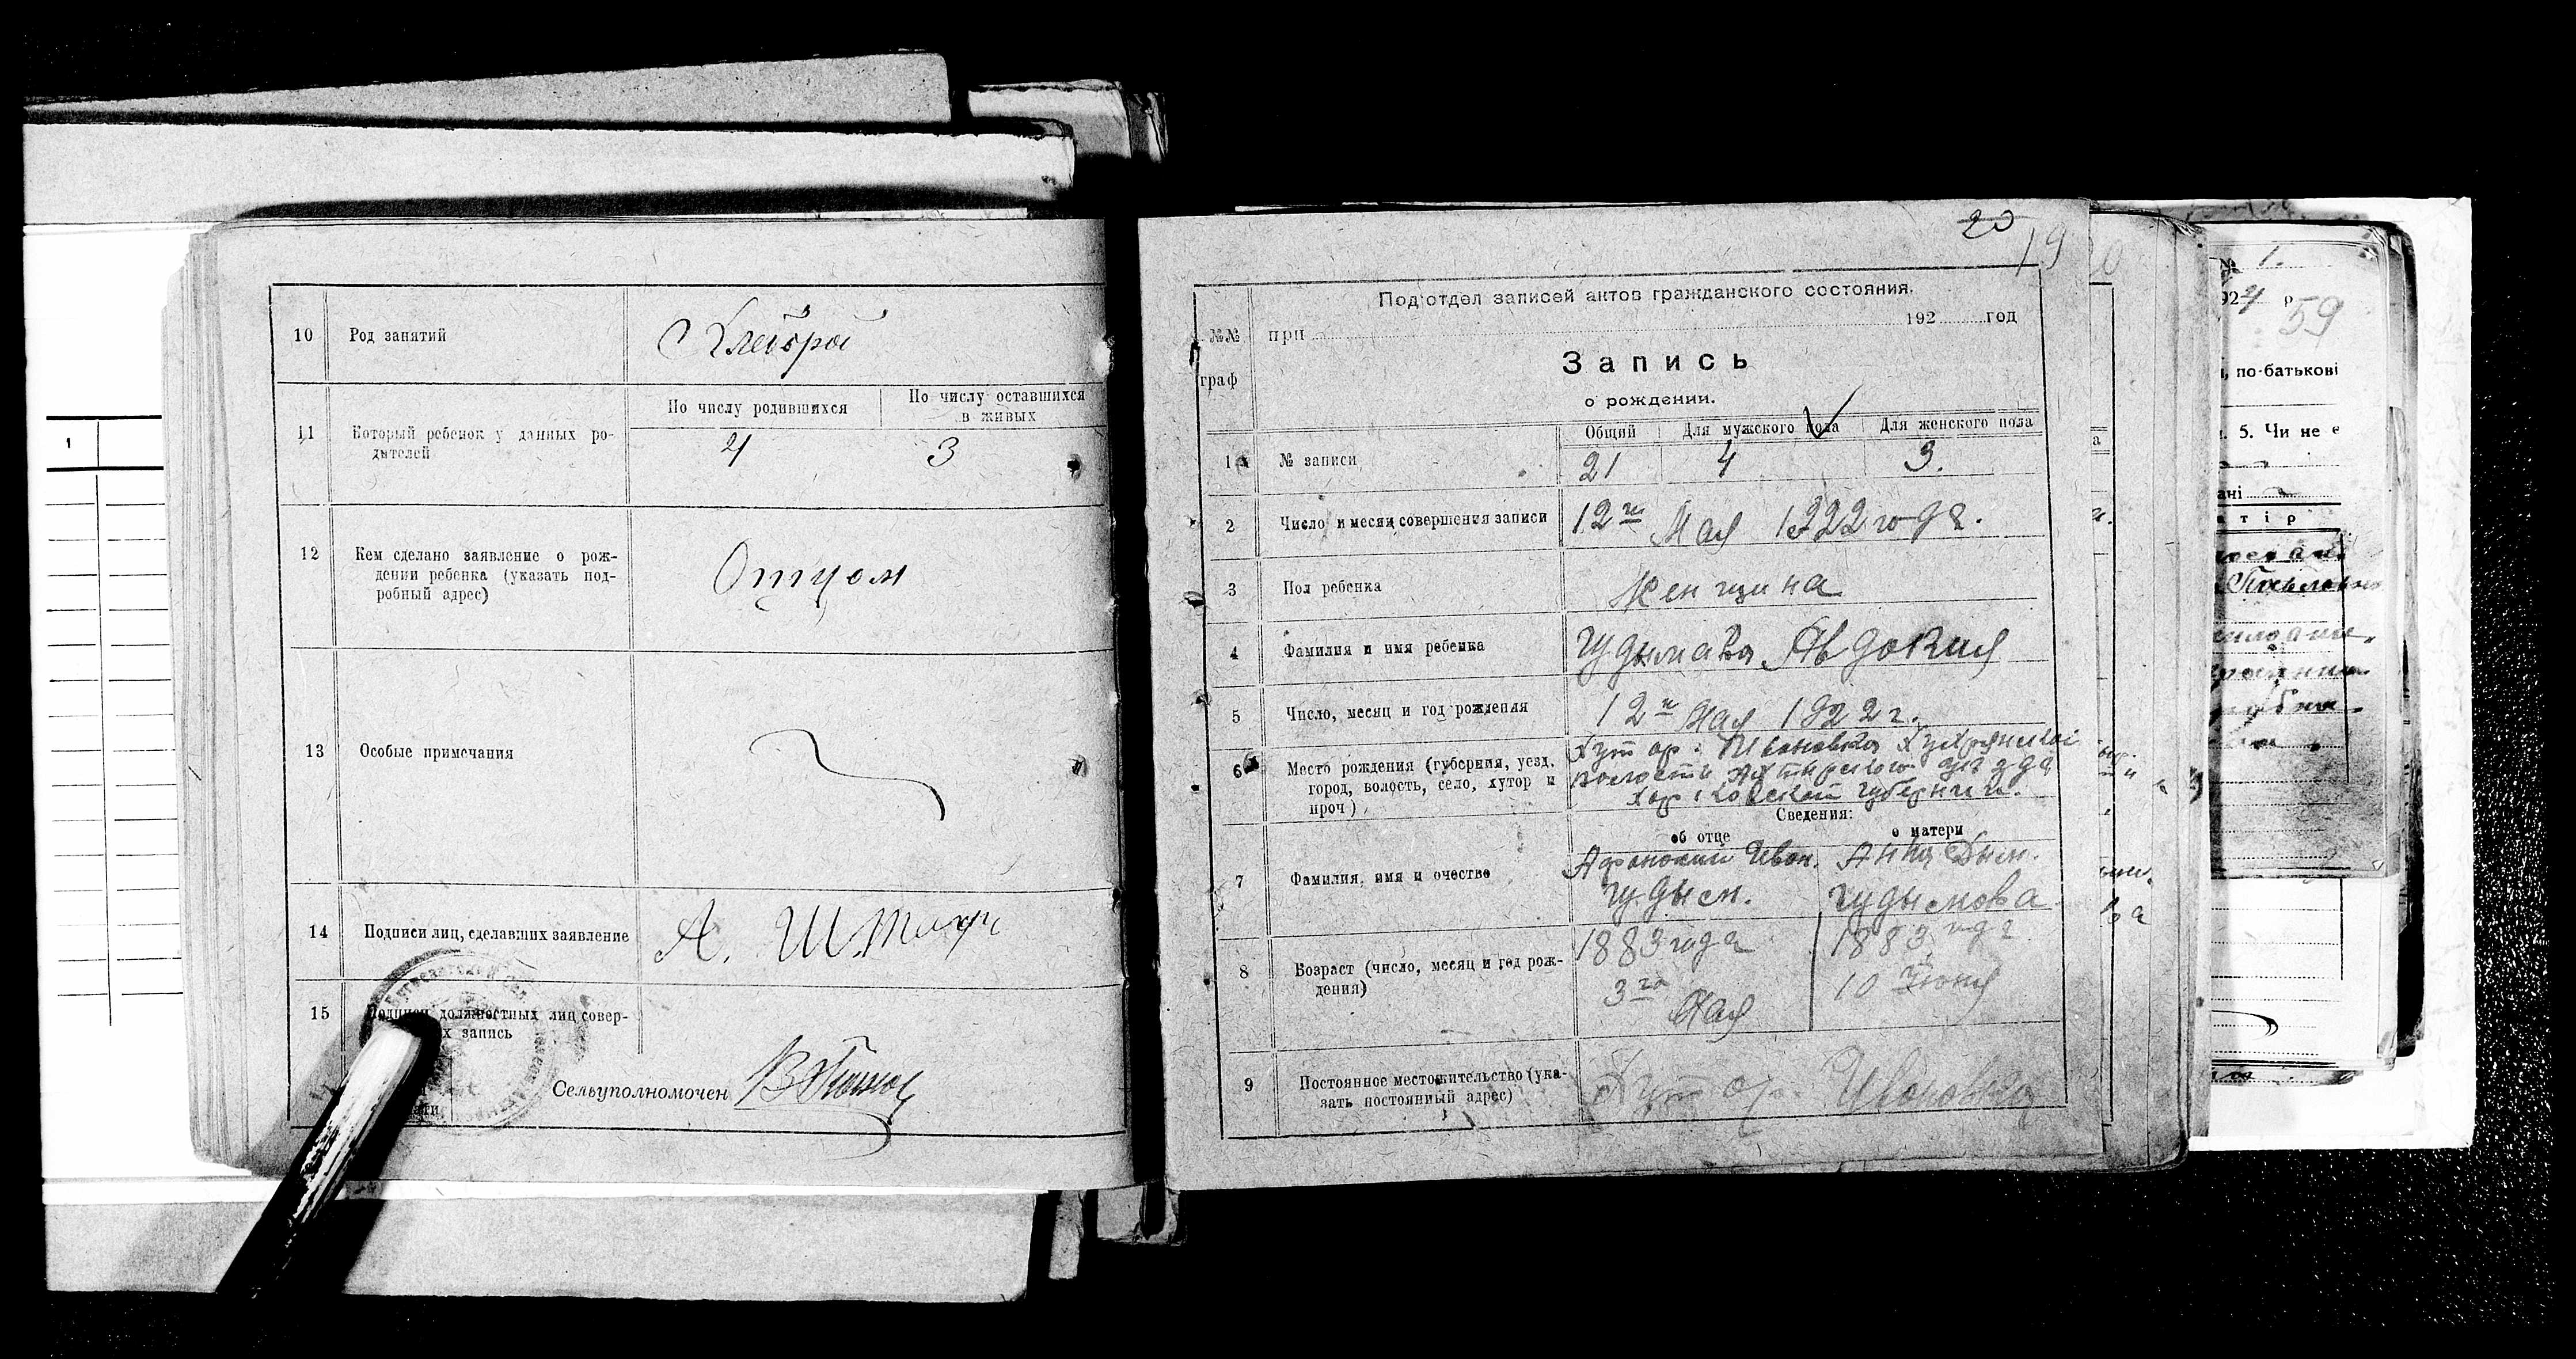 10 Род занятий
Хлебороб
11 Который ребенок у данных ро-
дителей
По числу родившихся
По числу оставшихся
в живых
4 3
12 Кем сделано заявление о рож-
дении ребенка (указать под-
робный адрес)
Отцом
13 Особые примечания
14 Подписи лиц, сделавших заявление
А.
15 Подписи должностных лиц совер-
х запись
Сельуполномочен
20
19
Под'отдел записей актов гражданского состояния.
№№
граф
при 192 год
Запись
о рождении.
Общий Для мужского пола Для женского пола
1 № записи 21 4 3.
2 Число и месяц совершения записи 12го Мая 1922 года.
3 Пол ребенка Женщина
4 Фамилия и имя ребенка Гудымава Явдокия
5 Число, месяц и год рождения 12го Мая 1922 г.
6 Место рождения (губерния, уезд,
город, волость, село, хутор и
проч)
Хутор: Ивановка
волости Ахтирского уезда
губернии.
Сведения:
об отце о матери
7 Фамилия, имя и очество
Афанасий Иван. Анна Дем.
Гудым. Гудымова
8 Возраст (число, месяц и год рож-
дения)
1883 года 1883 года
3го Мая 10го Июня
9 Постоянное местожительство (ука-
зать постоянный адрес)
Хутор. Ивановка
1.
924 р
59
по-батькові
5. Чи не є
ані
а т і р
Павловна